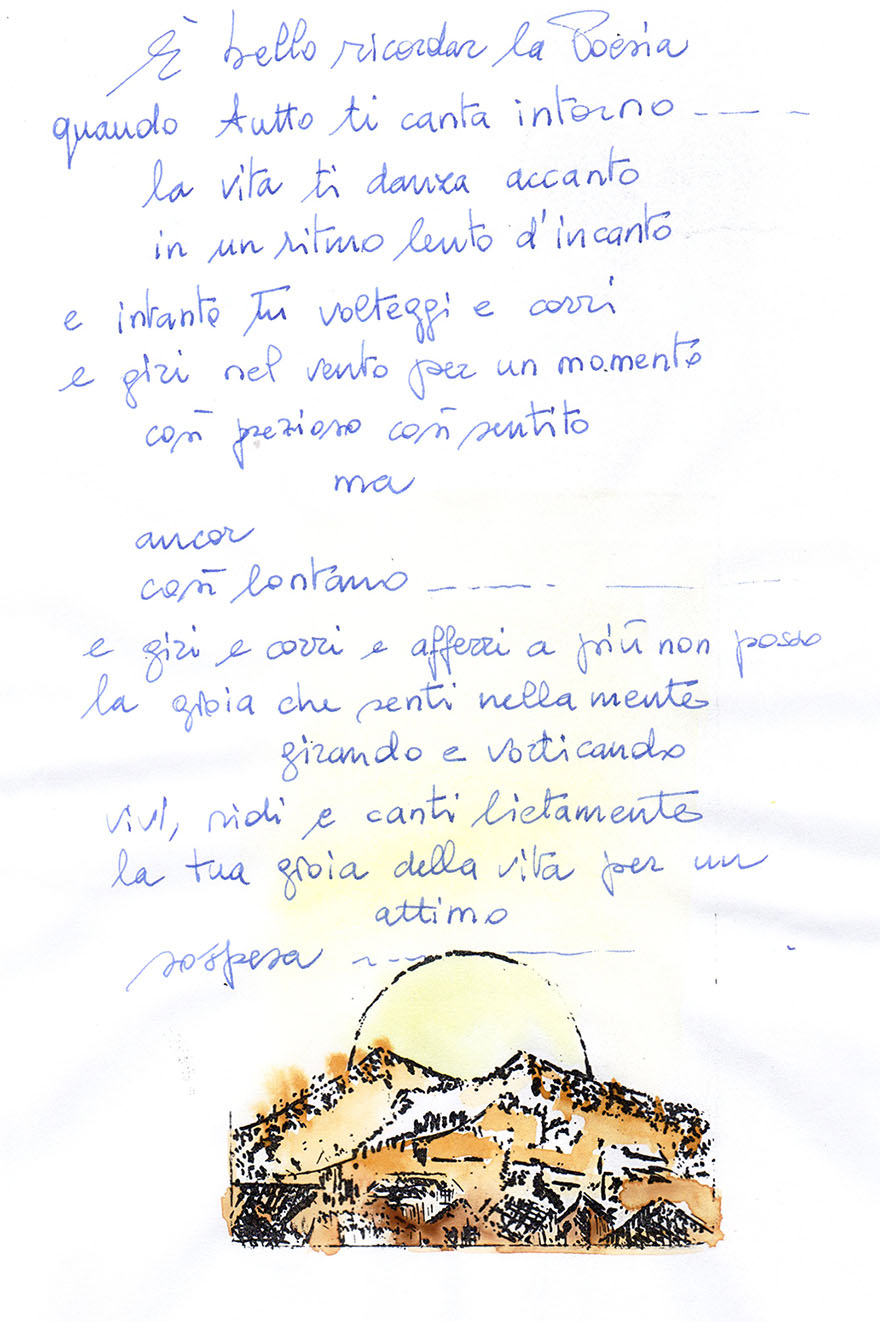 È bello ricordar la Poesia
quando tutto ti canta intorno -- — -
la vita ti danza accanto
in un ritmo lento d'incanto
e intanto tu volteggi e corri
e giri nel vento per un momento
così prezioso così sentito
ma
ancor
così lontano — - - — - — —
e giri e corri e afferri a più non posso
la gioia che senti nella mente
girando e vorticando
vivi, ridi e canti lietamente
la tua gioia della vita per un
attimo
sospesa - - — - —